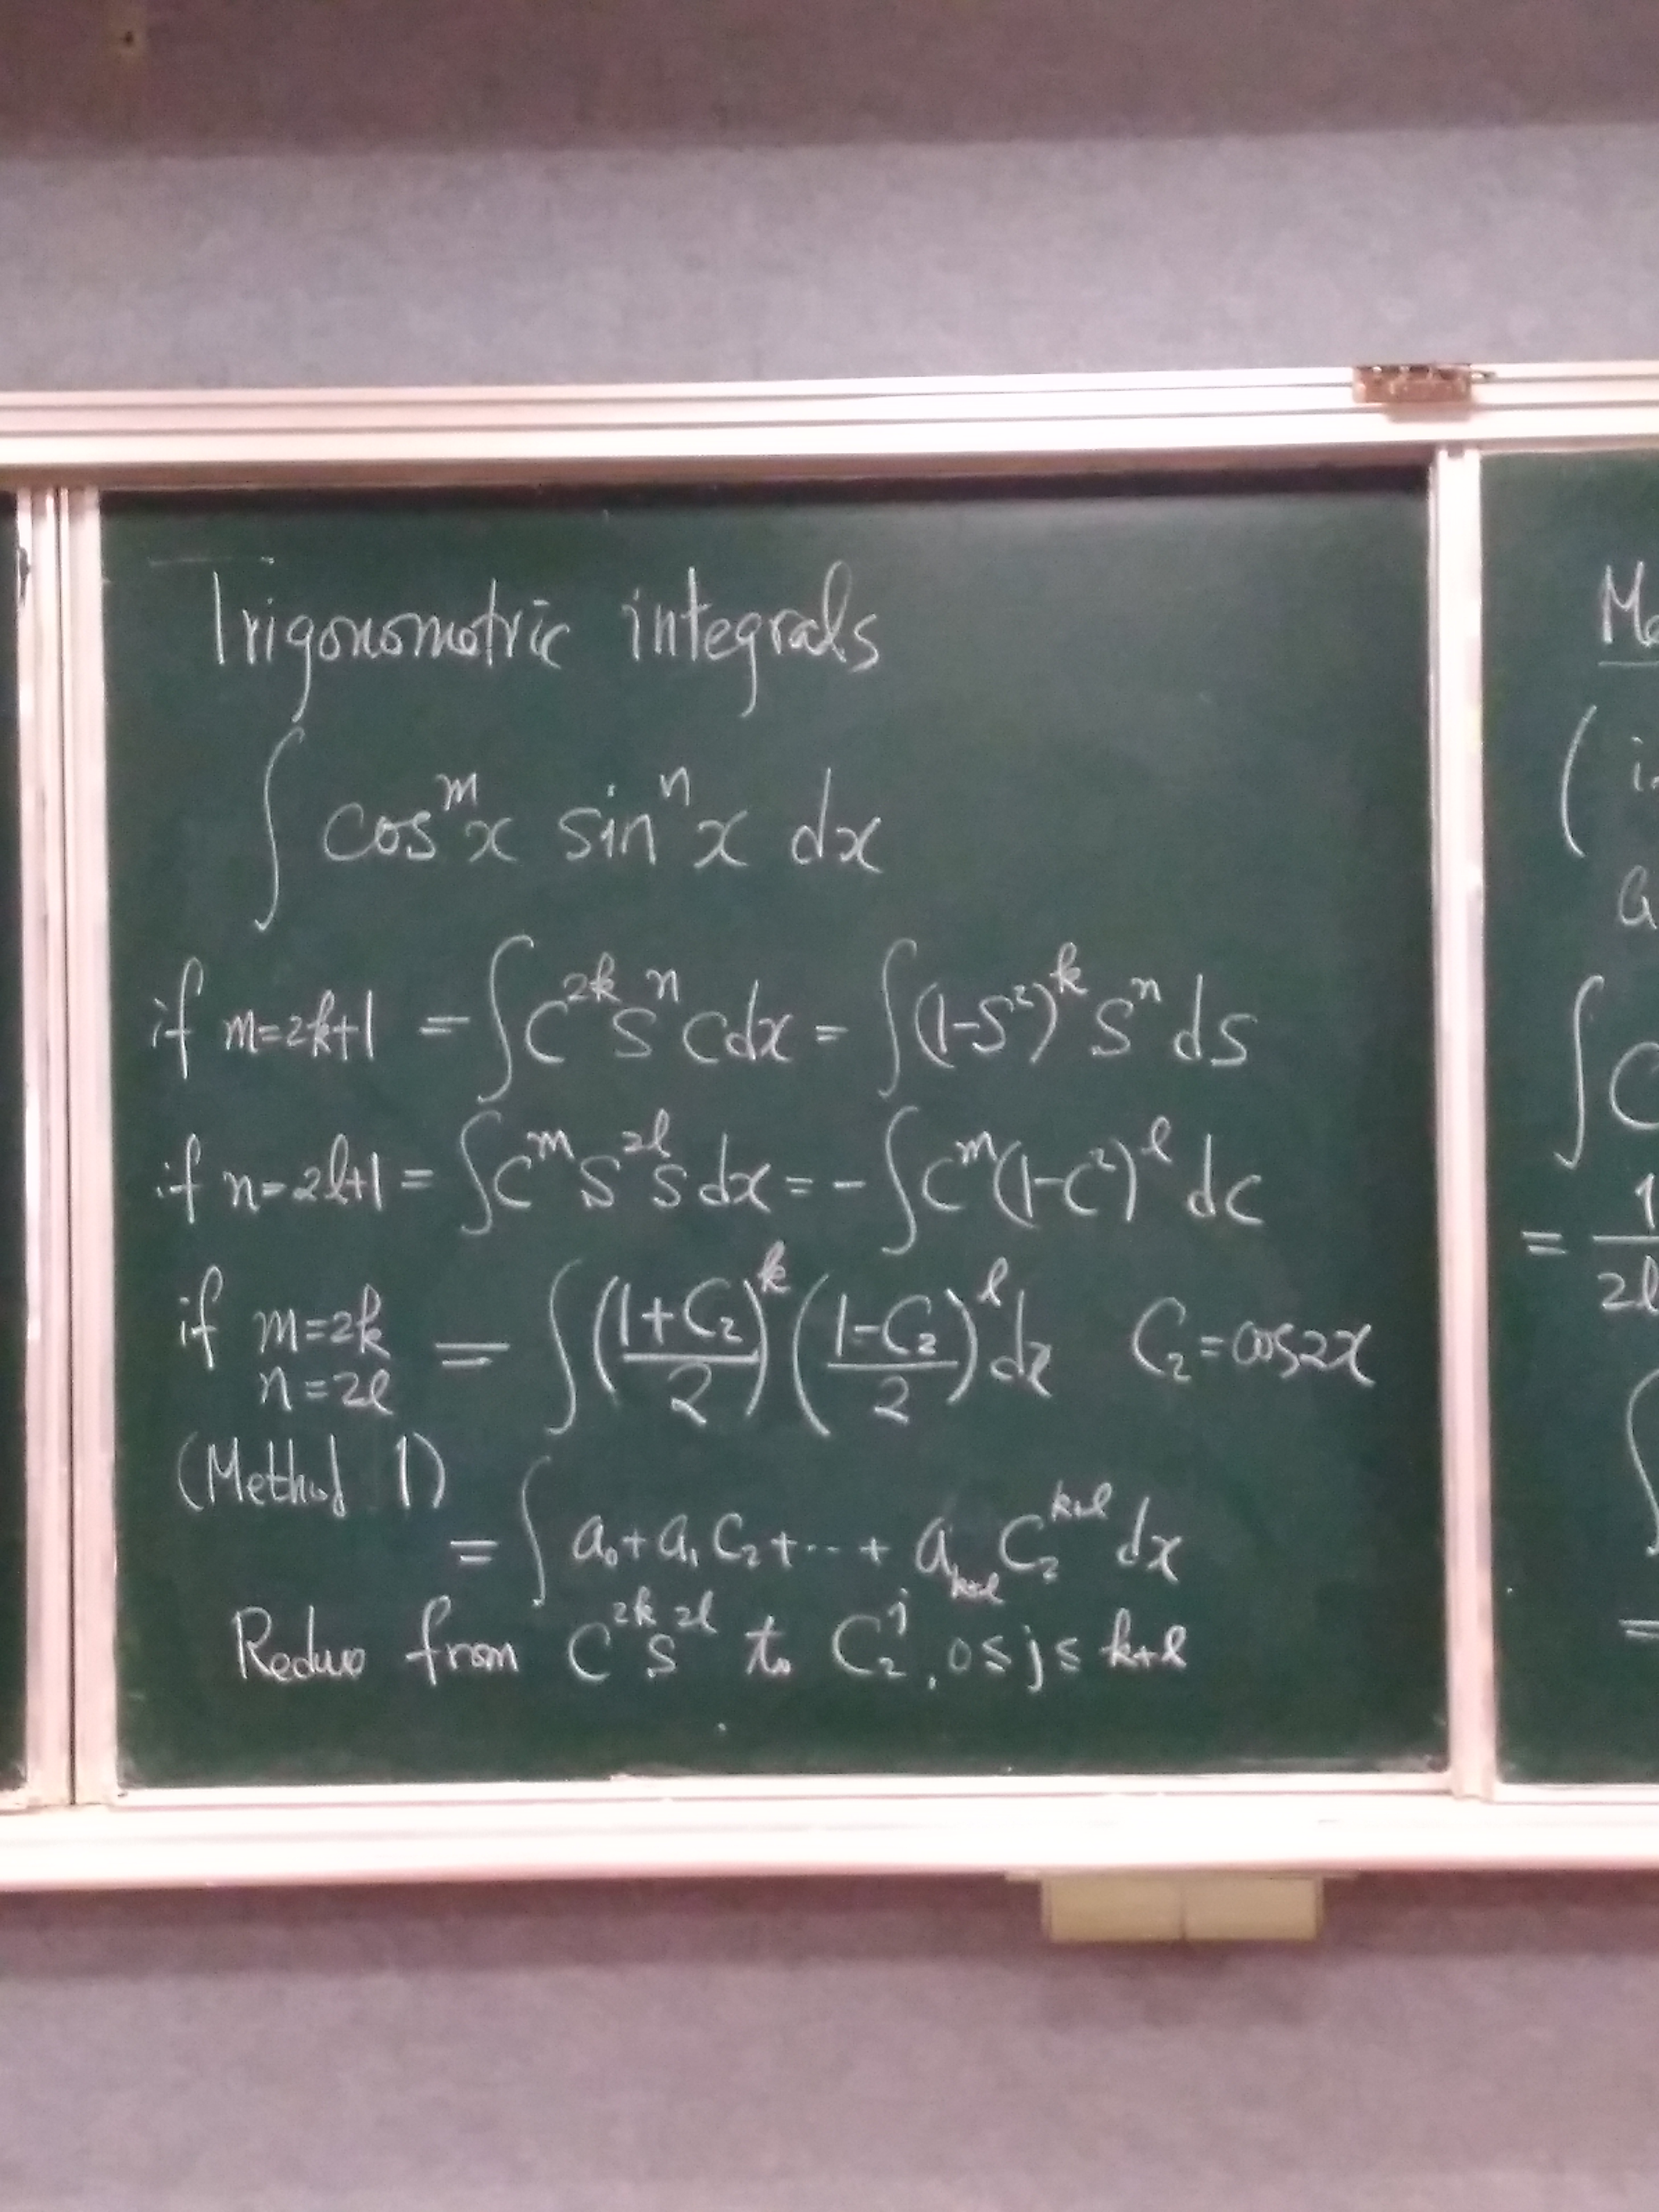 Trigonometric integrals
∫ cos^m x sin^n x dx
if m=2k+1 = ∫ C^{2k} S^n C dx = ∫ (1-S²)^k S^n dS
if n=2l+1 = ∫ C^m S^{2l} S dx = - ∫ C^m (1-C²)^l dC
if m=2k n=2l = ∫ ((1+C₂)/2)^k ((1-C₂)/2)^l dx C₂=cos2x
(Method 1)
= ∫ a₀+a₁C₂+⋯+a_{k+l}C₂^{k+l} dx
Reduce from C^{2k} S^{2l} to C₂^j, 0≤j≤k+l
∫ C
= 1
2l
=